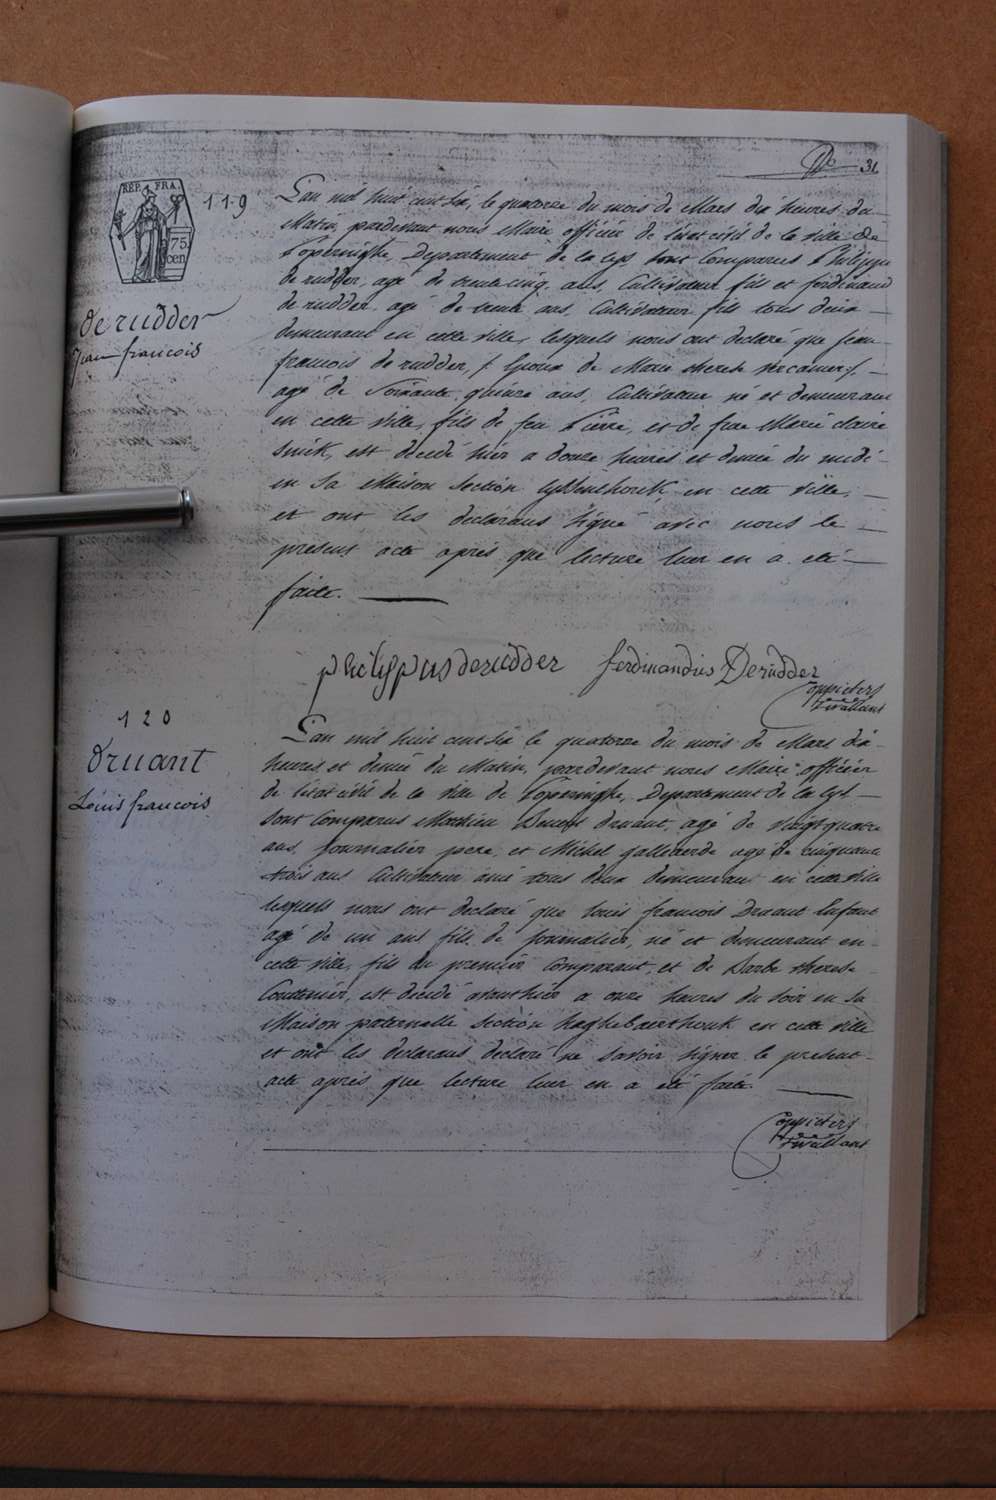 31
REP. FRA.
75
cen
119
de rudder
Jean francois
L'an mil huit cent six, le quatorze du mois de Mars dix heures du
Matin, pardevant nous Maire officier de l'état civil de la ville de
Poperinghe, Departement de la Lys sont comparus Philippe
de rudder, agé de trente cinq ans, Cultivateur fils et ferdinand
de rudder agé de trente ans, Cultivateur fils tous deux
demeurant en cette ville, lesquels nous ont declaré que jean
francois de rudder, Epoux de Marie therese
agé de Soixante quinze ans, Cultivateur né et demeurant
en cette ville, fils de feu Pierre, et de feue Marie claire
est decedé hier a douze heures et demie du midi
en Sa Maison Section en cette ville,
et ont les declarans signé avec nous le
present acte après que lecture leur en a eté
faite.
philippus derudder ferdinandus Derudder
Coppieters
Tivaillant
120
druant
Louis francois
L'an mil huit cent six le quatorze du mois de Mars dix
heures et demie du Matin, pardevant nous Maire officier
de l'état civil de la ville de Poperinghe, Departement de la Lys
Sont Comparus Mathieu druant, agé de vingt quatre
ans, Journalier pere, et Michel gallicerde agé de cinquante
trois ans Cultivateur ami tous deux demeurant en cette ville
lesquels nous ont declaré que louis francois Druant Enfant
agé de un ans fils de Journalier, né et demeurant en
cette ville, fils du premier Comparant, et de Barbe therese
est decedé avanthier a onze heures du Soir en sa
Maison paternelle Section haghebaerthouk en cette ville
et ont les declarans declaré ne savoir signer le present
acte après que lecture leur en a eté faite.
Coppieters
Tivaillant